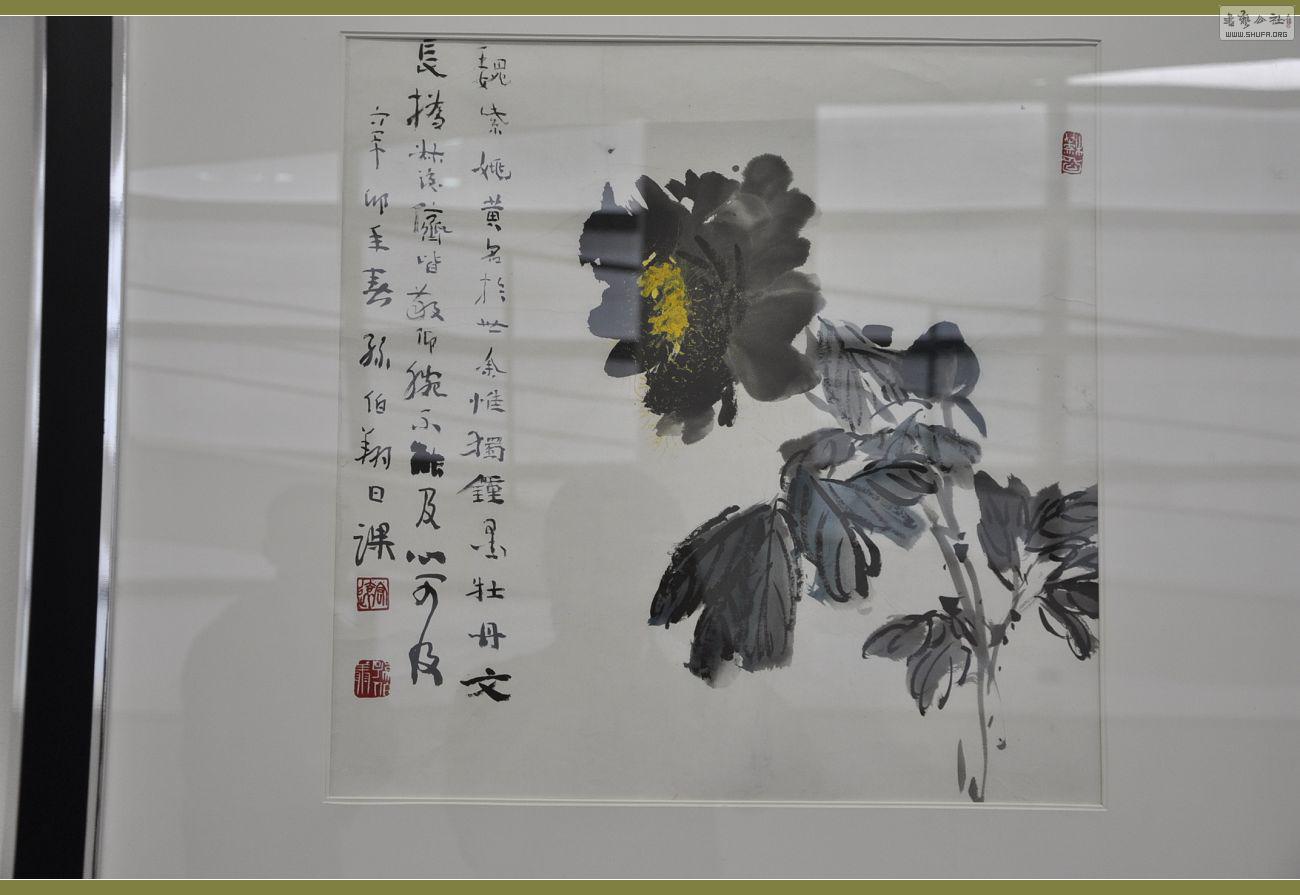 魏紫姚黃名於世余惟獨鍾墨牡丹文
長 淋漓 皆敬仰腕不能及心可及
辛卯 春孫伯翔日課
書藝公社
WWW.SHUFA.ORG